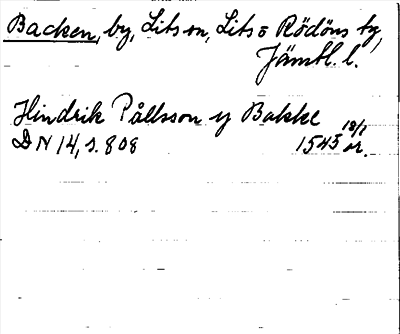 Backen, by, Lits sn, Lits o Rödöns tg,
Jämtl. l.
Hindrik Pållsson y Bakke
DN 14, s. 808 1545 18/1 or.